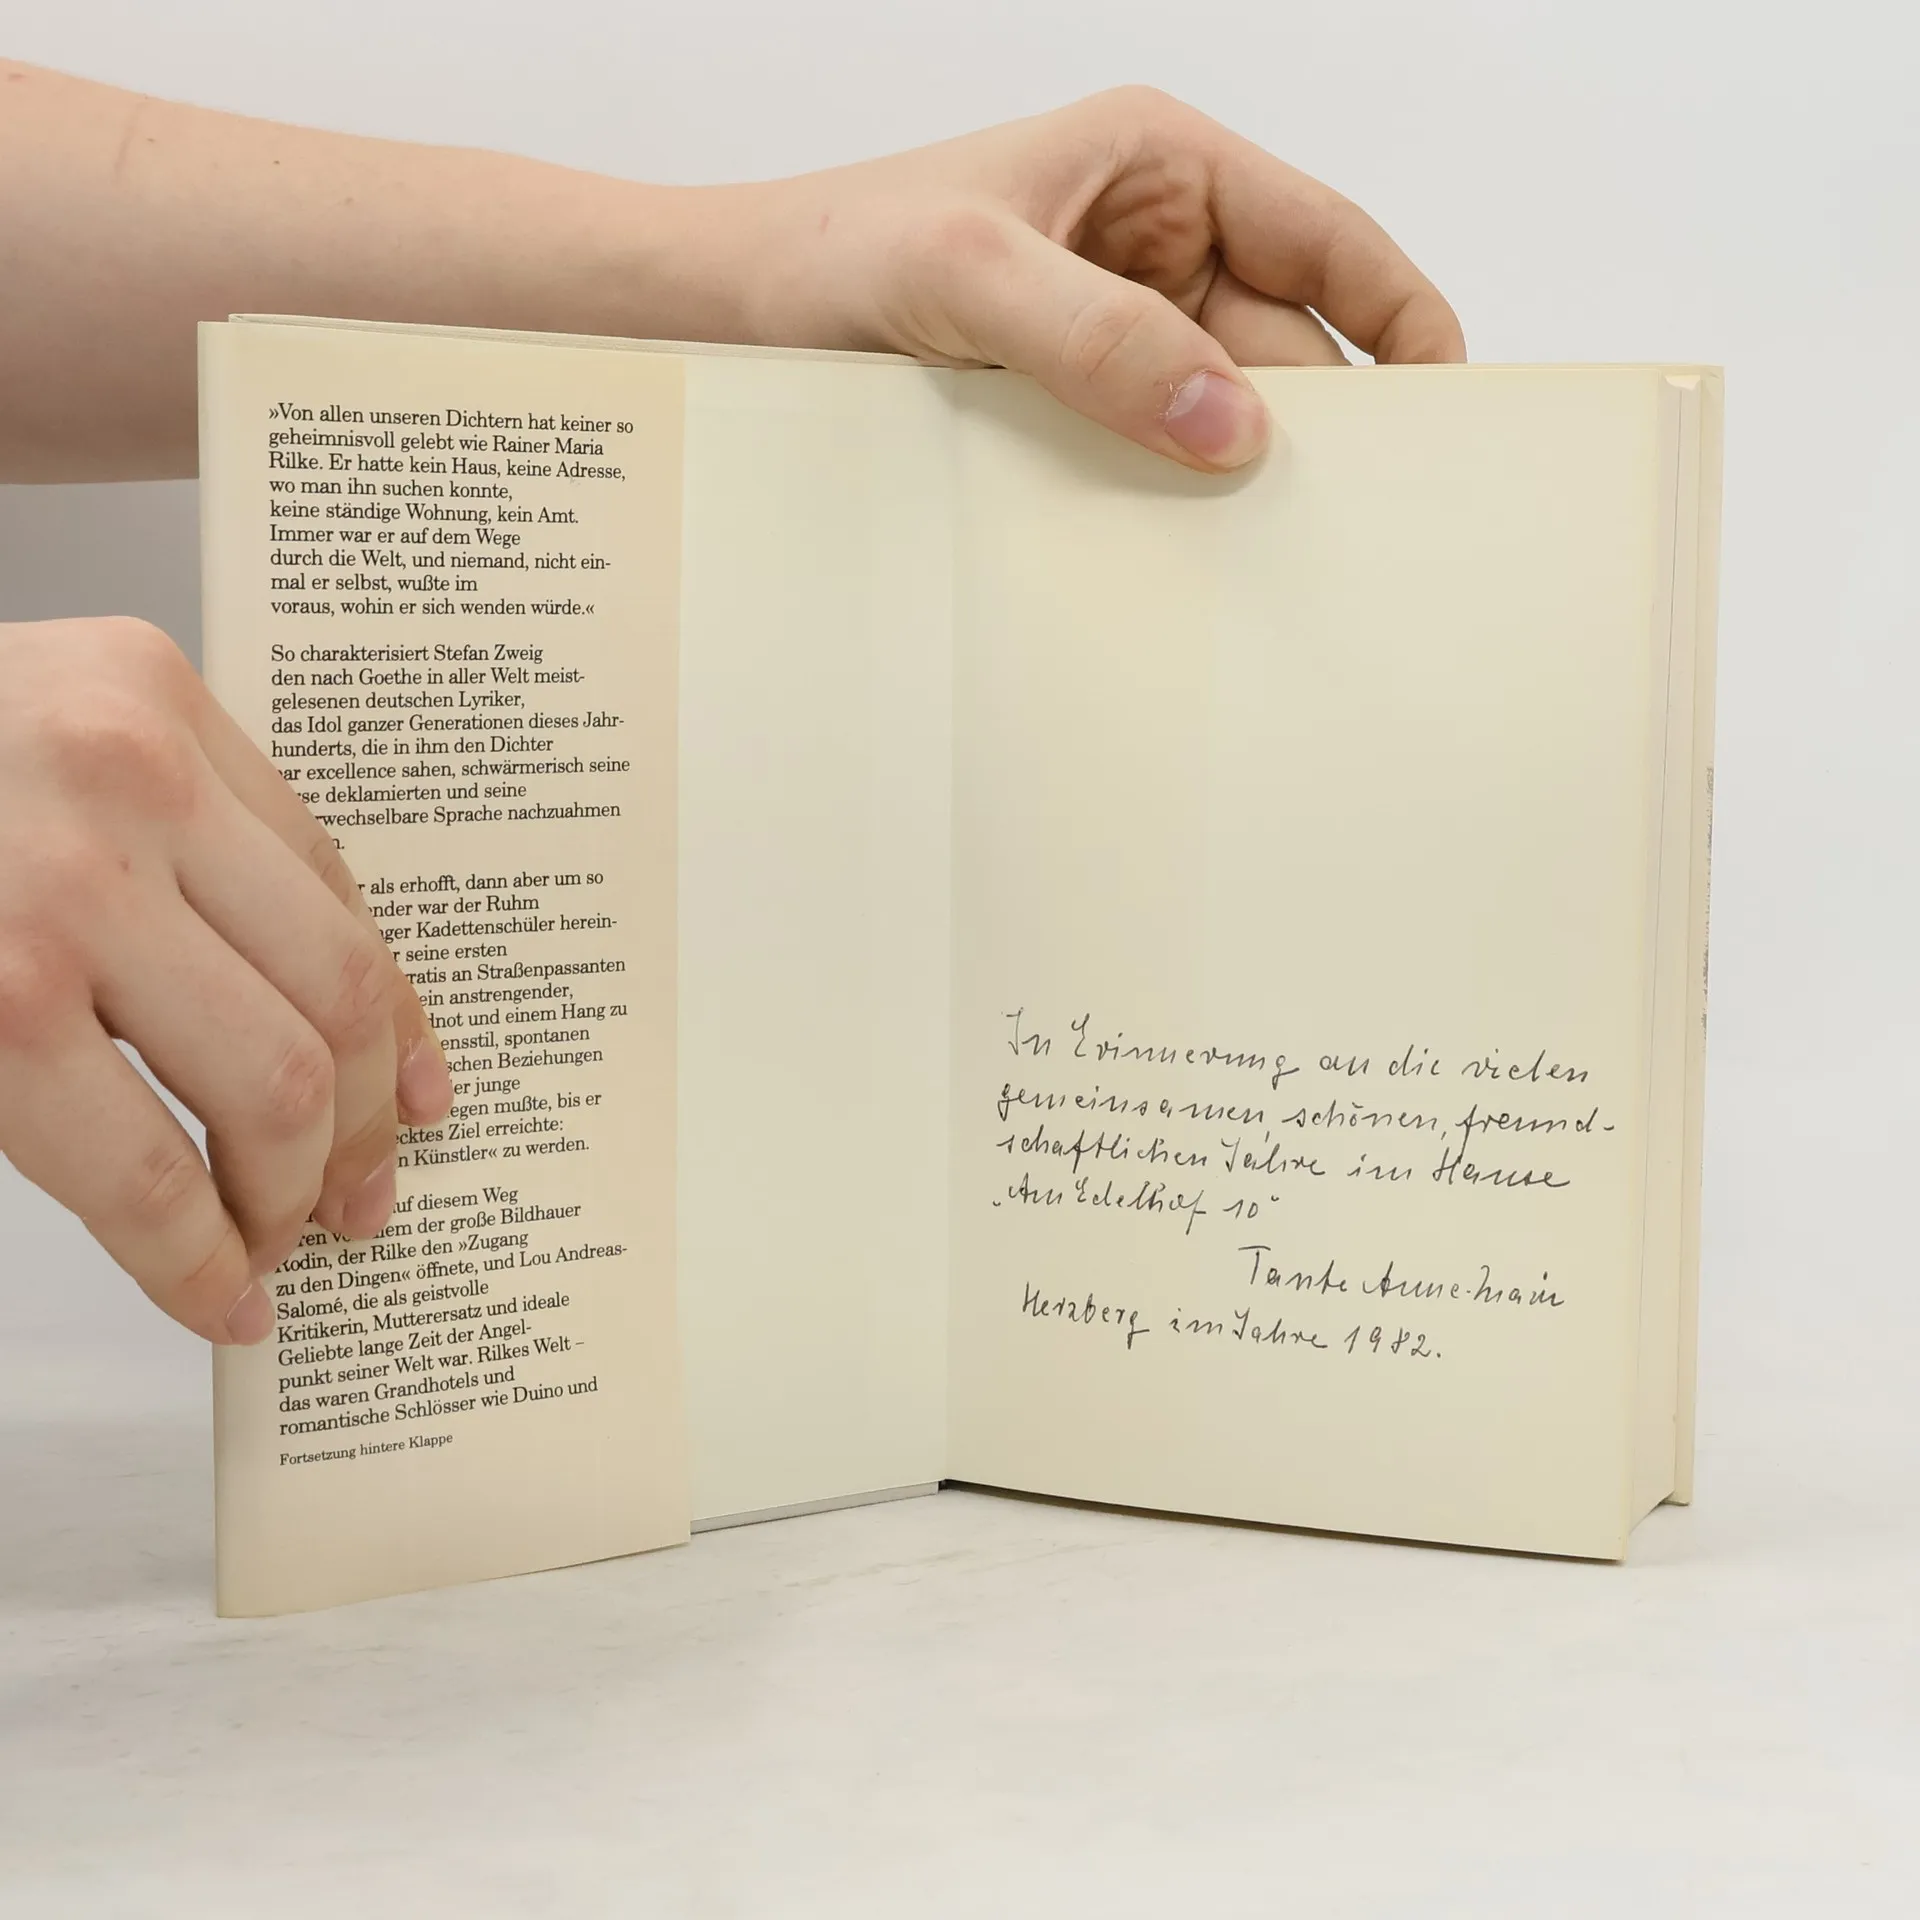 »Von allen unseren Dichtern hat keiner so
geheimnisvoll gelebt wie Rainer Maria
Rilke. Er hatte kein Haus, keine Adresse,
wo man ihn suchen konnte,
keine ständige Wohnung, kein Amt.
Immer war er auf dem Wege
durch die Welt, und niemand, nicht ein-
mal er selbst, wußte im
voraus, wohin er sich wenden würde.«
So charakterisiert Stefan Zweig
den nach Goethe in aller Welt meist-
gelesenen deutschen Lyriker,
das Idol ganzer Generationen dieses Jahr-
hunderts, die in ihm den Dichter
excellence sahen, schwärmerisch seine
deklamierten und seine
Sprache nachzuahmen
als erhofft, dann aber um so
war der Ruhm
Kadettenschüler herein-
seine ersten
an Straßenpassanten
ein anstrengender,
und einem Hang zu
spontanen
Beziehungen
junge
mußte, bis er
Ziel erreichte:
Künstler« zu werden.
auf diesem Weg
der große Bildhauer
Rodin, der Rilke den »Zugang
zu den Dingen« öffnete, und Lou Andreas-
Salomé, die als geistvolle
Kritikerin, Mutterersatz und ideale
Geliebte lange Zeit der Angel-
punkt seiner Welt war. Rilkes Welt –
das waren Grandhotels und
romantische Schlösser wie Duino und
Fortsetzung hintere Klappe
In Erinnerung an die vielen
gemeinsamen, schönen, freund-
schaftlichen Jahre im Hause
„Am Edelhof 10“
Tante Anne-Marie
Herzberg im Jahre 1982.